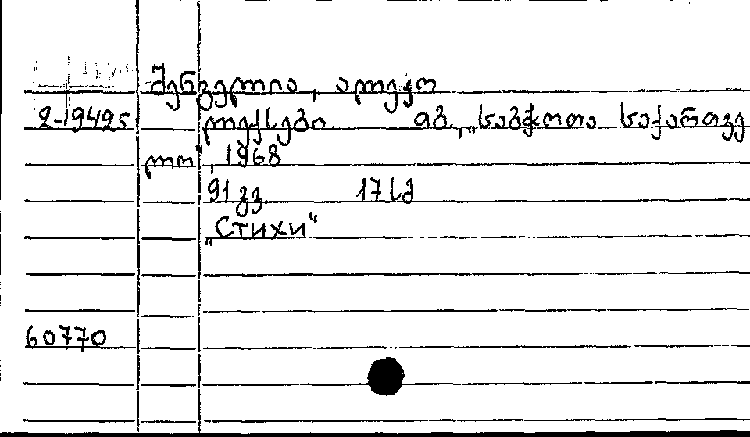 შენგელია, ალექო
2-19425 ლექსები თბ., „საბჭოთა საქართვე
ლო", 1968
91 გვ 17 სმ
„Стихи“
60770